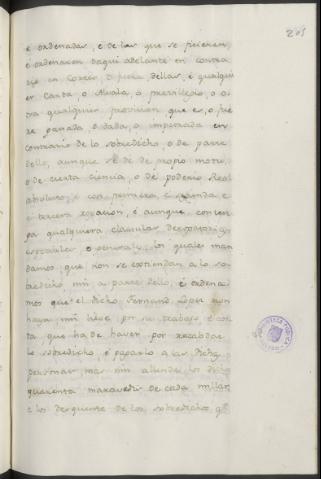 205
e ordenadas, e de las que se ficieren,
é ordenaren daqui adelante en contra
rio en Cortes, o fuera dellas, é qualqui
er Carta, o Alvala, o previllejio, o o
tra qualquier provision que es, o fue
re ganada o dada, o impetrada en
contrario de lo sobredicho, o de parte
dello, aunque sea de propio motu,
o de cierta ciencia, o de poderio Real
absoluto, e con primera, e segunda e
e tercera jusion, é aunque conten
ga qualquiera clausulas derogatorias
especiales, o generales, las quales man
damos que non se extiendan a lo so
bredicho nin a parte dello, é ordena
mos que el dicho Fernand Lopez non
haya nin lieve por su trabajo é cos
ta que ha de haver por recabdar
lo sobredicho, é pagarlo a las dichas
personas, mas nin allende los dichos
quarenta maravedis de cada millar,
e los desquente de los sobredichos, q̃